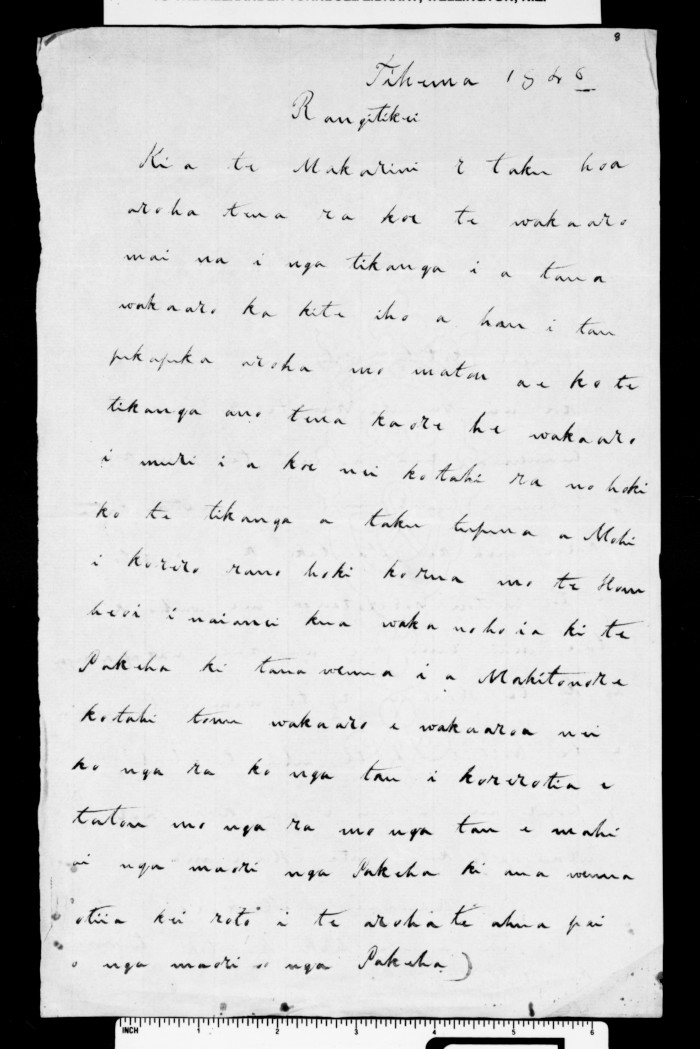 8
Tihema 1846
Rangitikei
Kia te Makarini e taku hoa
aroha tena ra koe te wakaaro
mai na i nga tikanga i a taua
wakaaro ka kite iho a hau i tau
pukapuka aroha mo matou ae ko te
tikanga ano tena kaore he wakaaro
i muri i a koe nei kotahi ra no hoki
ko te tikanga a taku tupuna a Mohi
i korero rano hoki korua mo te
heoi inaianei kua waka nohoia ki te
Pakeha ki tana wenua i a Makitonore
kotahi tonu wakaaro e wakaaroa nei
ko nga ra ko nga tau i korerotia e
tatou mo nga ra mo nga tau e mahi
ai nga maori nga Pakeha ki ana wenua
otiia kei roto i te aroha te ahua pai
o nga maori o nga Pakeha)
INCH 1 2 3 4 5 6